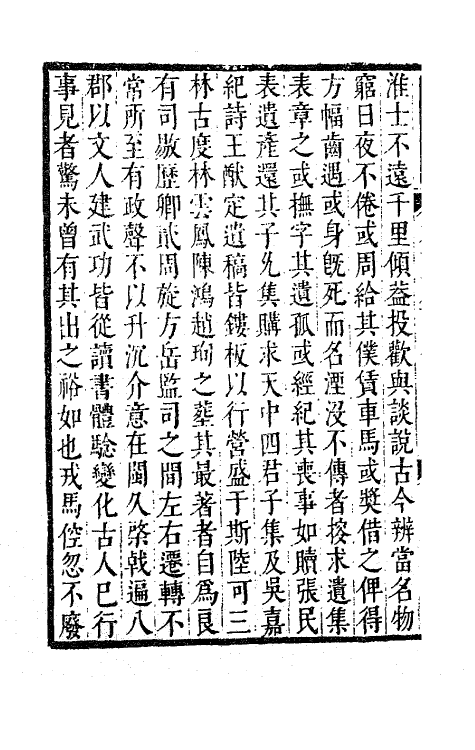 淮士不遠千里傾蓋投歡與談說古今辨當名物
窮日夜不倦或周給其僕賃車馬或奬借之俾得
方幅齒遇或身旣死而名湮沒不傳者搜求遺集
表章之或撫字其遺孤或經紀其喪事如贖張民
表遺產還其子允集購求天中四君子集及吳嘉
紀詩王猷定遺稿皆鏤板以行營盛于斯陸可三
林古度林雲鳳陳鴻趙珣之塟其最著者自爲良
有司敭歷卿貳周旋方岳監司之間左右遷轉不
常所至有政聲不以升沉介意在閩久棨戟遍八
郡以文人建武功皆從讀書體驗變化古人已行
事見者驚未曾有其出之裕如也戎馬倥忽不廢